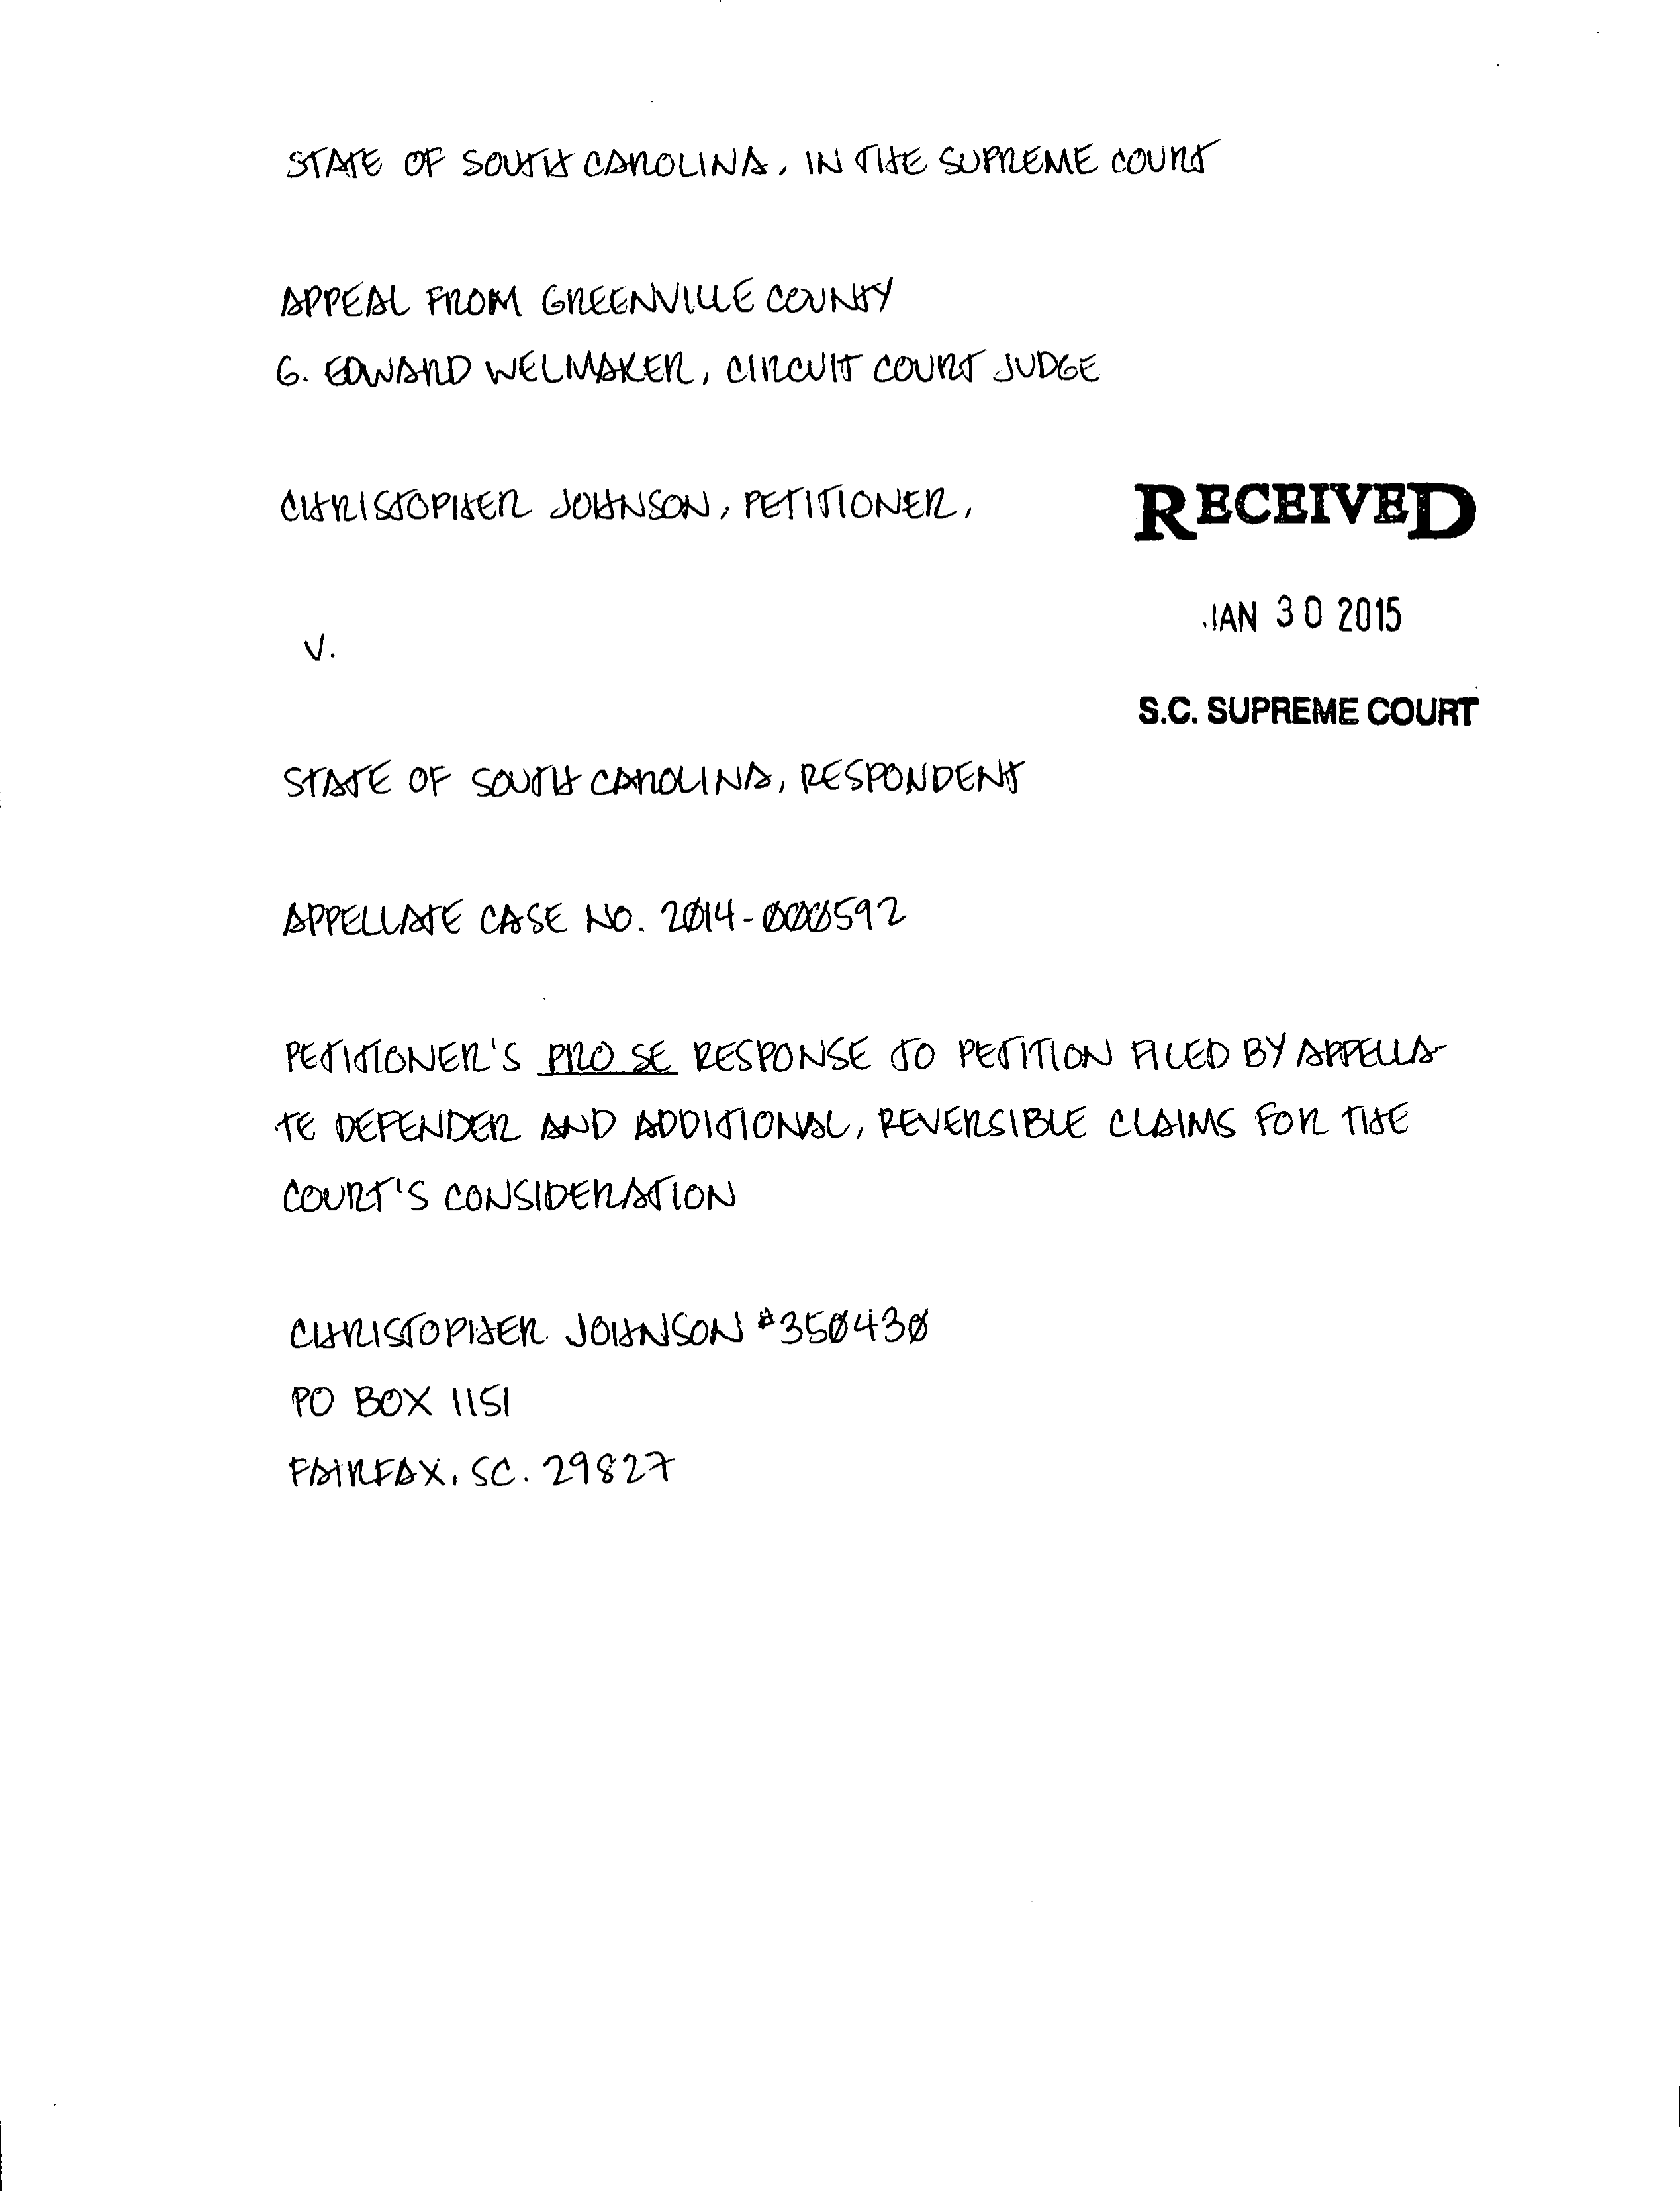 STATE OF SOUTH CAROLINA, IN THE SUPREME COURT
APPEAL FROM GREENVILLE COUNTY
G. EDWARD WELMAKER, CIRCUIT COURT JUDGE
CHRISTOPHER JOHNSON, PETITIONER,
RECEIVED
JAN 30 2015
V.
S.C. SUPREME COURT
STATE OF SOUTH CAROLINA, RESPONDENT
APPELLATE CASE NO. 2014-000592
PETITIONER'S PRO SE RESPONSE TO PETITION FILED BY APPELLA-
TE DEFENDER AND ADDITIONAL, REVERSIBLE CLAIMS FOR THE
COURT'S CONSIDERATION
CHRISTOPHER JOHNSON #350430
PO BOX 1151
FAIRFAX, SC. 29827